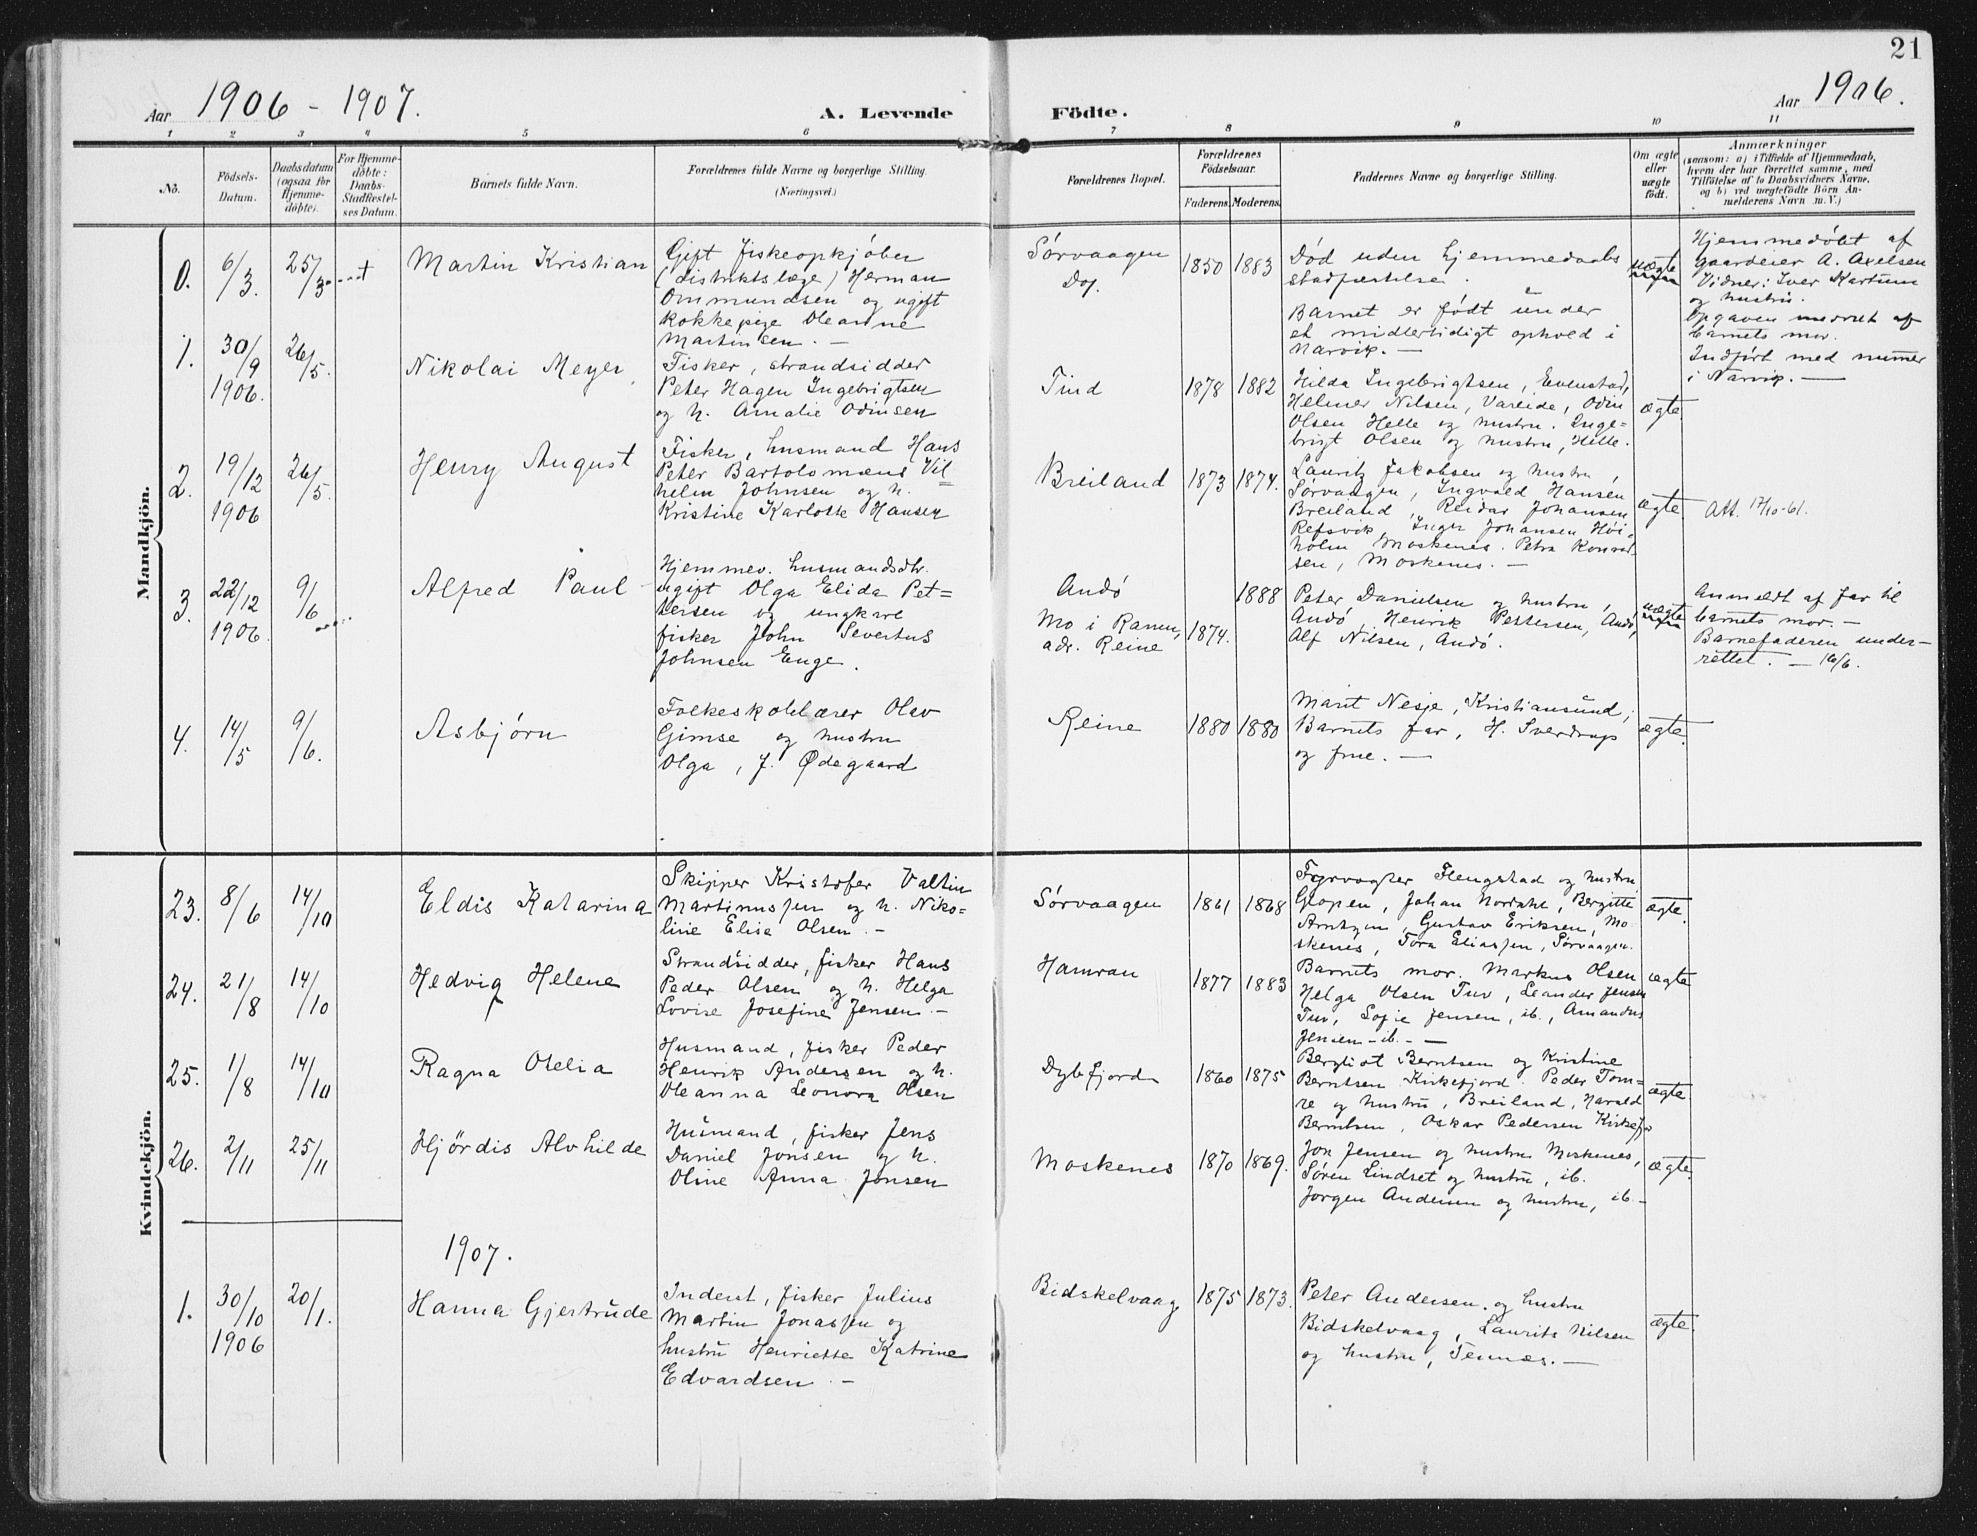 21
Aar 1906 - 1907.
A. Levende Födte.
Aar 1906.
1 2 3 4 5 6 7 8 9 10 11
No.
Födsels-
Datum.
Daabsdatum
(ogsaa for
Hjemme-
døbte).
For Hjemme-
døbte:
Daabs-
Stadfæstel-
ses Datum.
Barnets fulde Navn.
Forældrenes fulde Navne og borgerlige Stilling.
(Næringsvei.)
Forældrenes Bopæl.
Forældrenes
Födselsaar.
Faderens. Moderens.
Faddernes Navne og borgerlige Stilling.
Om ægte
eller
uægte
født.
Anmærkninger
(saasom: a) i Tilfælde af Hjemmedaab,
hvem der har forrettet samme, med
Tilföielse af to Daabsvidners Navne,
og b) ved uægtefødte Börn An-
melderens Navn m. V.)
Mandkjön.
0. 6/3. 25/3 †
Martin Kristian
Gift fiskeopkjøber
(distriktslæge) Herman
Ommundsen og ugift
kokkepige Oleanne
Martinsen. -
Sørvaagen
Dp.
1850 1883
Død uden hjemmedaabs
stadfæstelse.
Barnet er født under
et midlertidigt ophold i
Narvik. -
uægte
Hjemmedøbt af
gaardeier A. Axelsen
Vidner: Iver Kartum
og hustru.
Opgaven meddelt af
barnets mor.
Indført med nummer
i Narvik. -
1. 30/9 26/5.
1906.
Nikolai Meyer,
Fisker, strandsidder
Peter Hagen Ingebrigtsen
og h. Amalie Odinsen
Tind
1878 1882
Hilda Ingebrigtsen, Evenstad,
Helmer Nilsen, Vareide, Odin
Olsen Helle og hustru. Inge-
brigt Olsen og hustru, Helle.
ægte.
2. 19/12 26/5.
1906
Henry August
Fisker, husmand Hans
Peter Bartolomæus Vil-
helm Johnsen og h.
Kristine Karlotte Hansen
Breiland
1873 1874.
Lauritz Jakobsen og hustru,
Sørvaagen, Ingvald Hansen
Breiland, Reidar Johansen
Refsvik, Inger Johansen Høi-
holm Moskenes. Petra Konrad-
sen, Moskenes. -
ægte
Att. 17/10-61.
3. 22/12 9/6
1906.
Alfred Paul -
Hjemmev. husmandsdtr.
ugift Olga Elida Pet-
tersen og ungkarl
fisker John Severtus
Johnsen Enge.
Andø
Mo i Ranen,
adr. Reine
1874. 1888
Peter Danielsen og hustru,
Andø Henrik Pettersen, Andø,
Alf Nilsen, Andø.
uægte
Anmeldt af far til
barnets mor. -
Barnefaderen under-
rettet. - 16/6.
4. 14/5 9/6.
Asbjørn
Folkeskolelærer Olav
Gimse og hustru
Olga, f. Ødegaard
Reine
1880 1880
Marit Nesje, Kristiansund,
Barnets far, H. Sverdrup
og frue. -
ægte.
Kvindekjön.
23. 8/6 14/10
Eldis Katarina
Skipper Kristofer Valtin
Martinussen og h. Niko-
line Elise Olsen. -
Sørvaagen
1861 1868
Fyrvogter Flengstad og hustru
Glopen, Johan Nordahl, Bergitte
Arntzen, Gustav Eriksen, Mo-
skenes, Tora Eliassen, Sørvaagen.
ægte.
24. 21/8 14/10
Hedvig Helene
Strandsidder, fisker Hans
Peder Olsen og h. Helga
Lovise Josefine Jensen. -
Hamran
1877 1883
Barnets mor. Markus Olsen
Helga Olsen Tuv, Leander Jensen
Tuv, Sofie Jensen, ib., Amandus
Jensen - ib. -
ægte
25. 1/8 14/10
Ragna Otelia
Husmand, fisker Peder
Henrik Andersen og h.
Oleanna Leonora Olsen
Dybfjord
1860 1875
Bergliot Berntsen og Kristine
Berntsen Kirkefjord. Peder Tom-
re og hustru, Breiland, Harald
Berntsen, Oskar Pedersen Kirkefjo
ægte.
26. 2/11 25/11
Hjördis Alvhilde
Husmand, fisker Jens
Daniel Jonsen og h.
Oline Anna Jonsen
Moskenes
1870 1869.
Jon Jensen og hustru Moskenes,
Søren Lindset og hustru, ib.
Jørgen Andersen og hustru, ib. -
ægte.
1907.
1. 30/10 20/1.
1906
Hanna Gjertrude
Inderst, fisker Julius
Martin Jonassen og
hustru Henriette Katrine
Edvardsen. -
Bidskelvaag
1875 1873.
Peter Andersen og hustru
Bidskelvaag, Laurits Nilsen
og hustru, Tennæs. -
ægte.